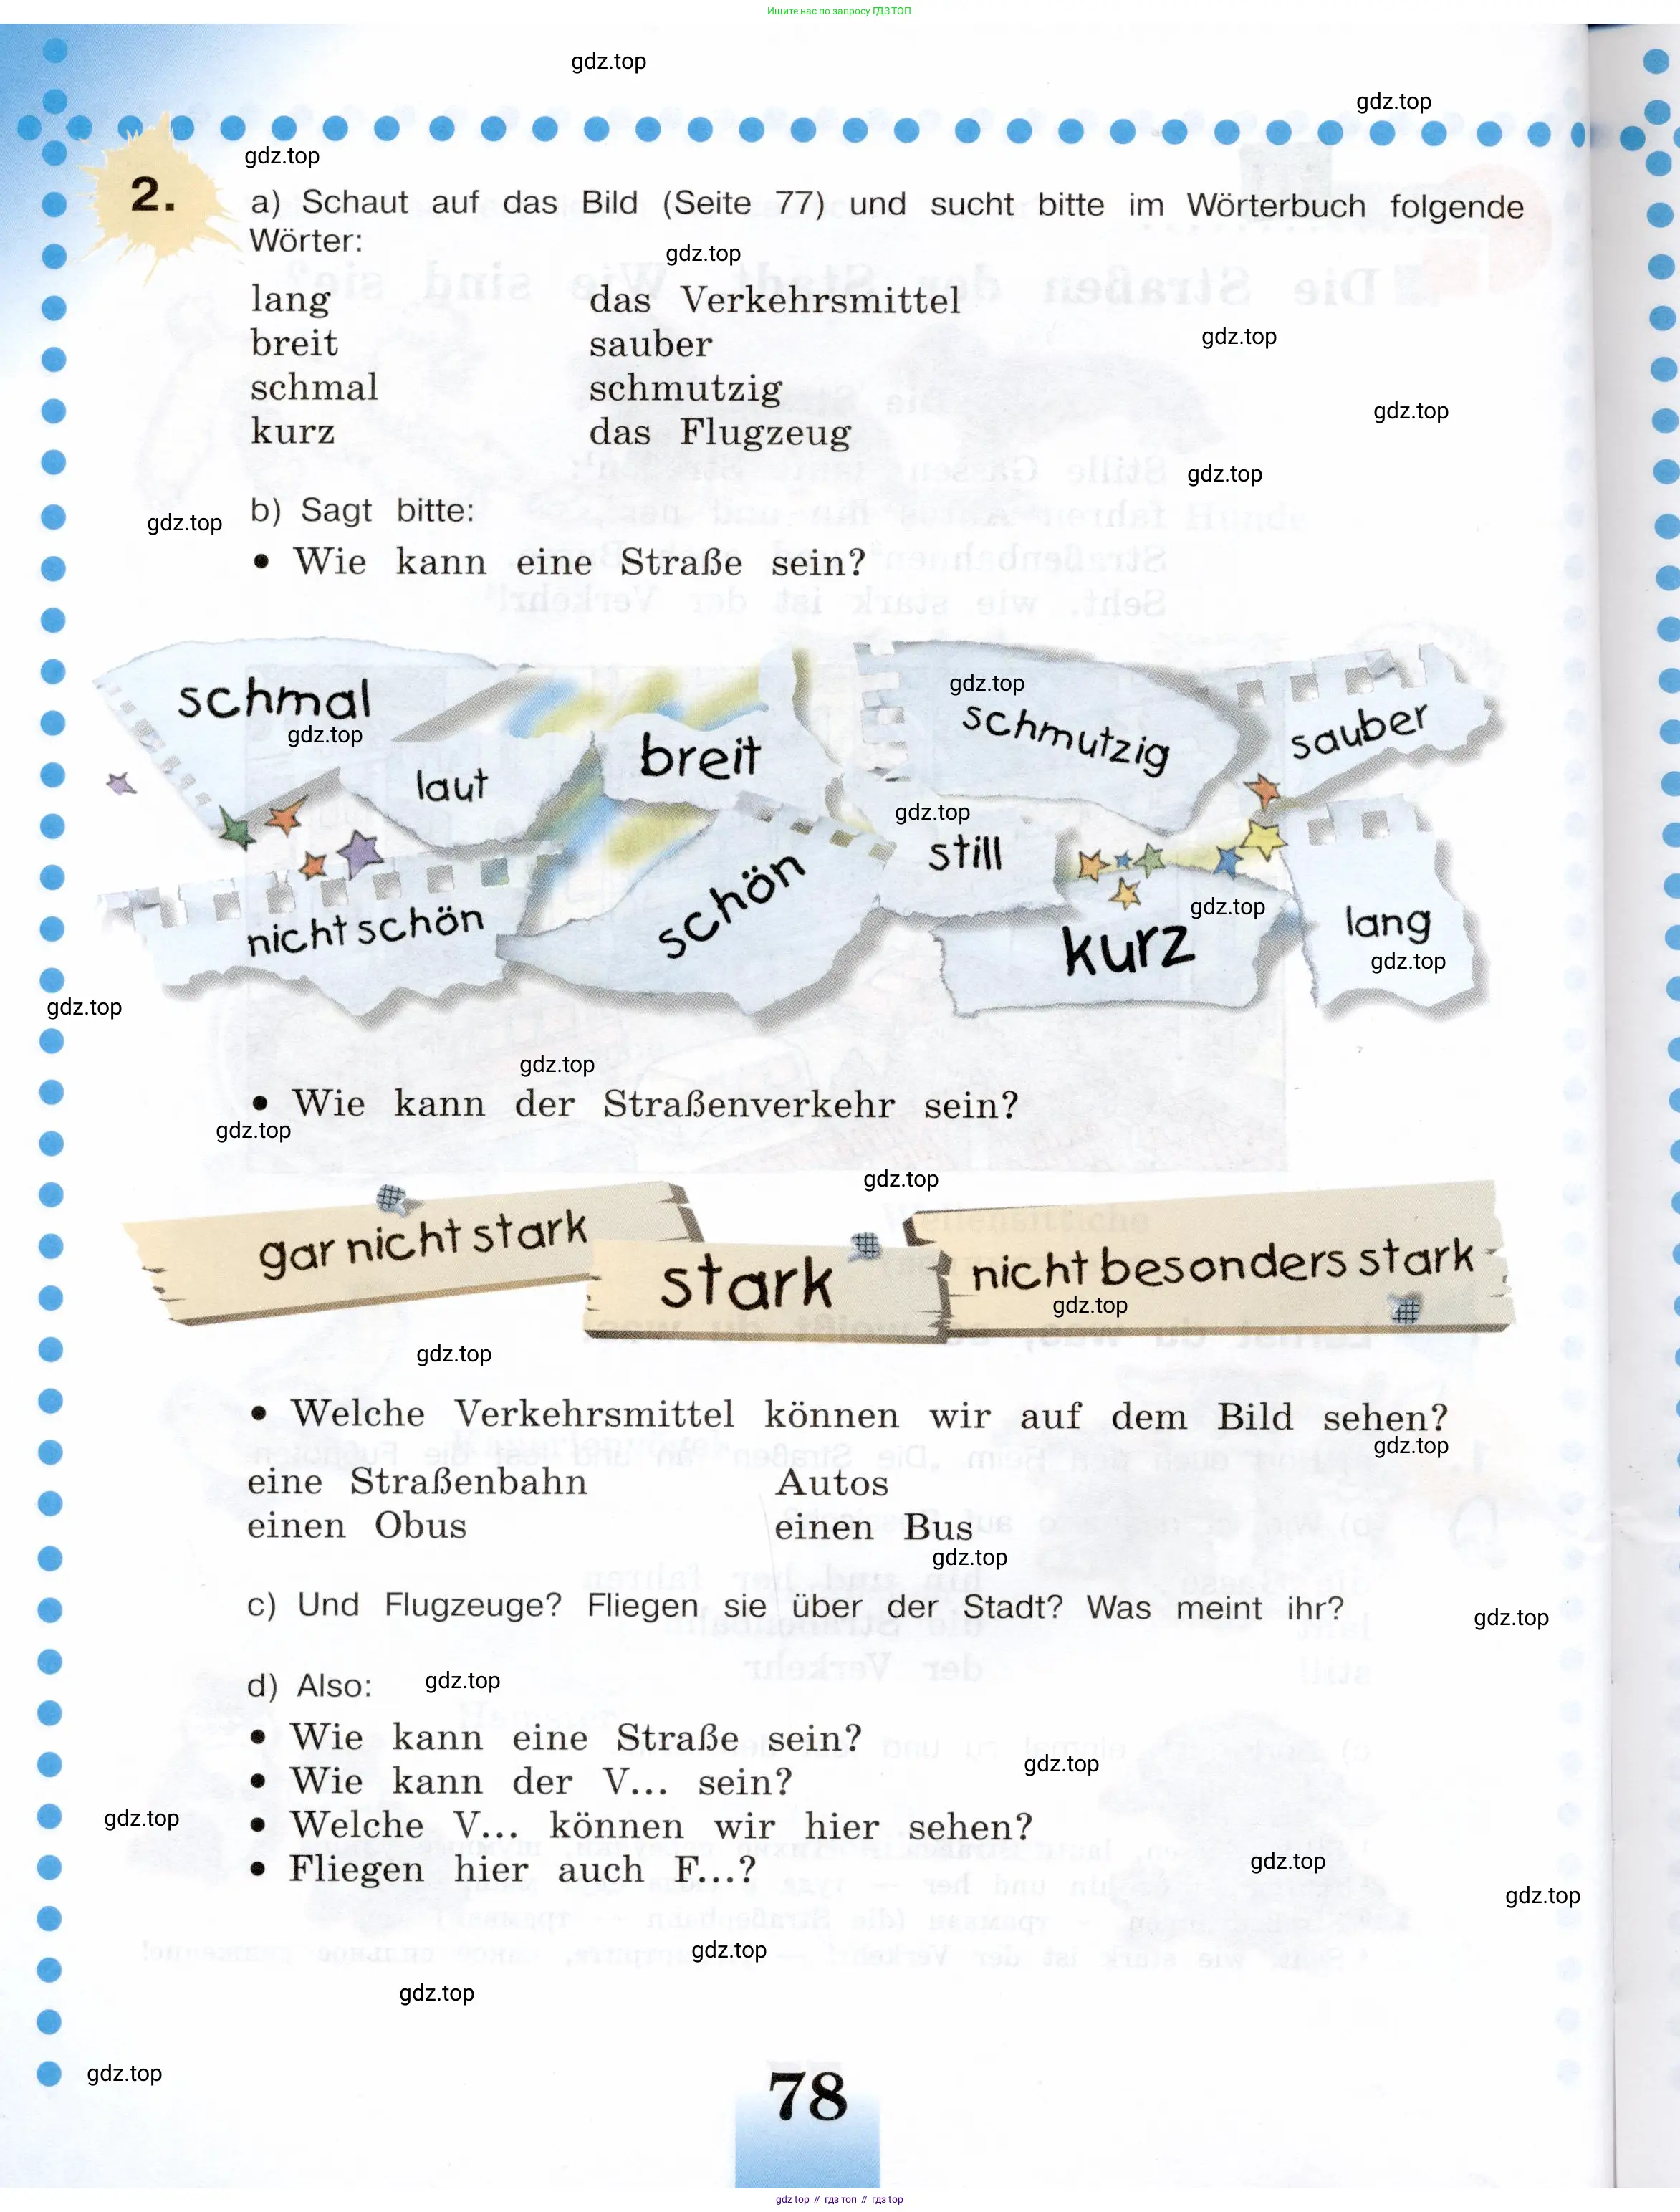 Ищите нас по запросу ГДЗ ТОП
gdz.top
gdz.top
gdz.top
2.
a) Schaut auf das Bild (Seite 77) und sucht bitte im Wörterbuch folgende
Wörter:
gdz.top
lang das Verkehrsmittel
breit sauber
gdz.top
schmal schmutzig
gdz.top
kurz das Flugzeug
gdz.top
b) Sagt bitte:
gdz.top
• Wie kann eine Straße sein?
schmal
gdz.top
laut
breit
gdz.top
schmutzig
sauber
gdz.top
still
nicht schön
schön
gdz.top
kurz
lang
gdz.top
gdz.top
gdz.top
• Wie kann der Straßenverkehr sein?
gdz.top
gdz.top
gar nicht stark
stark
nicht besonders stark
gdz.top
gdz.top
• Welche Verkehrsmittel können wir auf dem Bild sehen?
gdz.top
eine Straßenbahn Autos
einen Obus einen Bus
gdz.top
c) Und Flugzeuge? Fliegen sie über der Stadt? Was meint ihr?
gdz.top
d) Also:
gdz.top
• Wie kann eine Straße sein?
gdz.top
• Wie kann der V... sein?
gdz.top
• Welche V... können wir hier sehen?
• Fliegen hier auch F...?
gdz.top
gdz.top
gdz.top
gdz.top
gdz.top
78
gdz top // гдз топ // гдз top